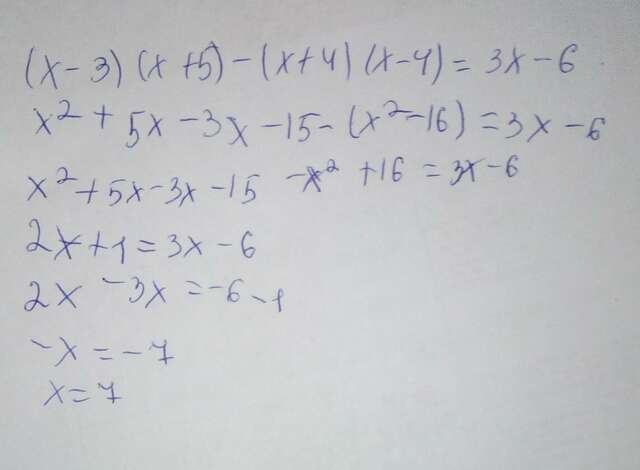 (x-3)(x+5)-(x+4)(x-4)=3x-6
x²+5x-3x-15-(x²-16)=3x-6
x²+5x-3x-15-x²+16=3x-6
2x+1=3x-6
2x-3x=-6-1
-x=-7
x=7